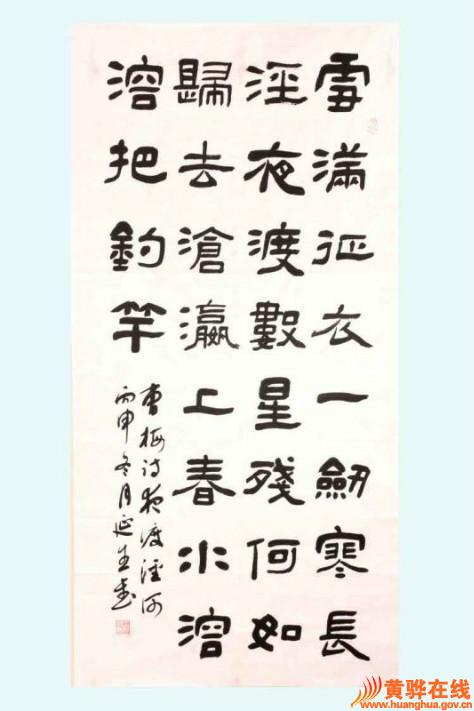 雪滿征衣一劒寒長
涇夜渡數星殘何如
歸去滄瀛上春水溶
溶把釣竿
曹梅诗夜渡涇河
丙申冬月延生書
黄骅在线
www.huanghua.gov.cn